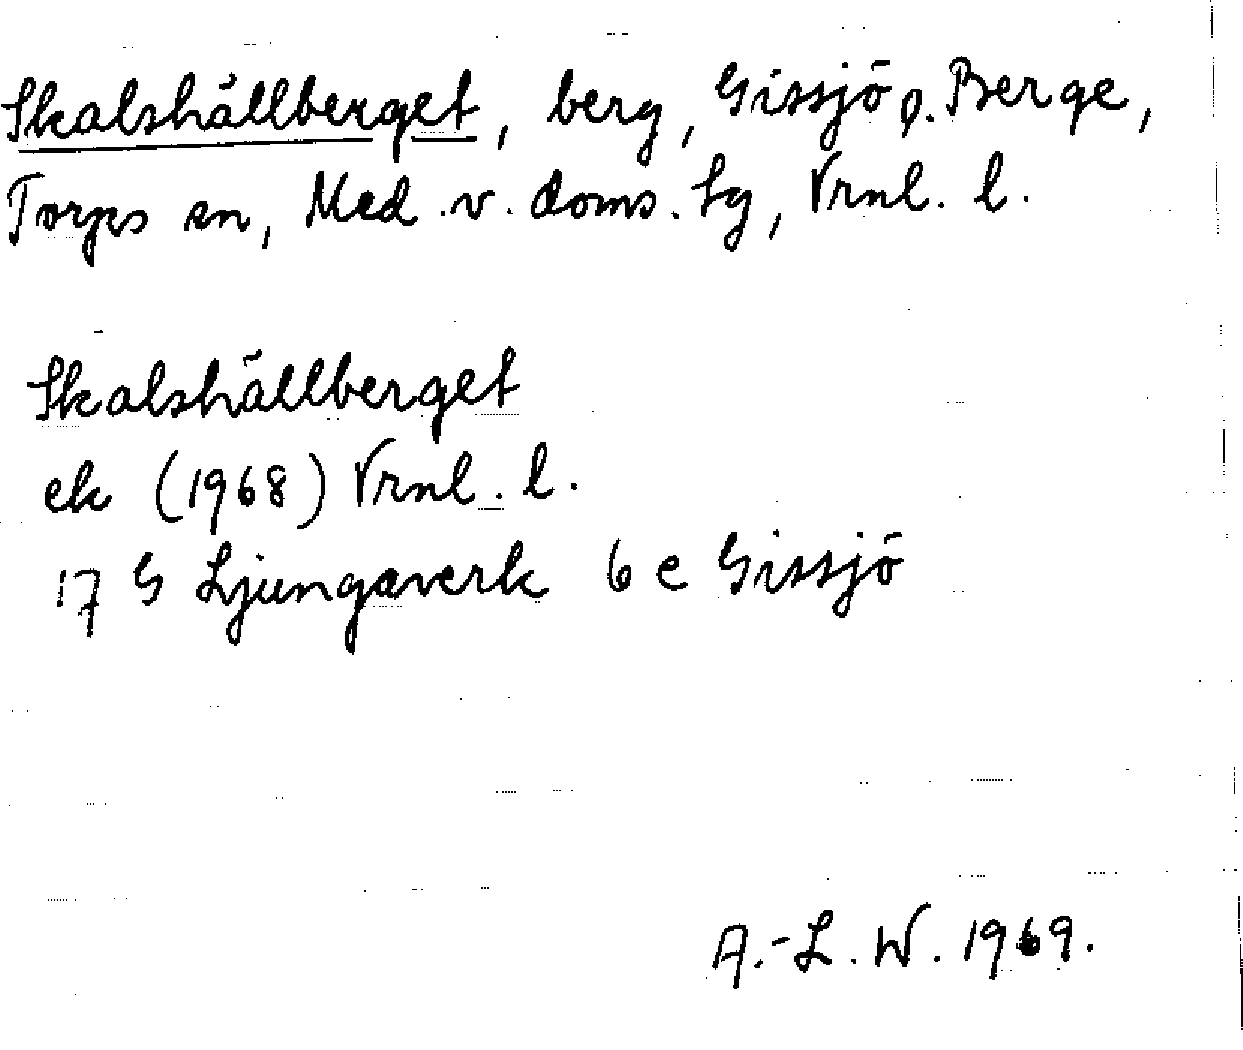 Skalshällberget, berg, Gissjö o. Berge,
Torps sn, Med. v. doms. tg, Vrnl. l.
Skalshällberget
ek (1968) Vrnl. l.
17 G Ljungaverk 6 e Gissjö
A.-L. W. 1969.